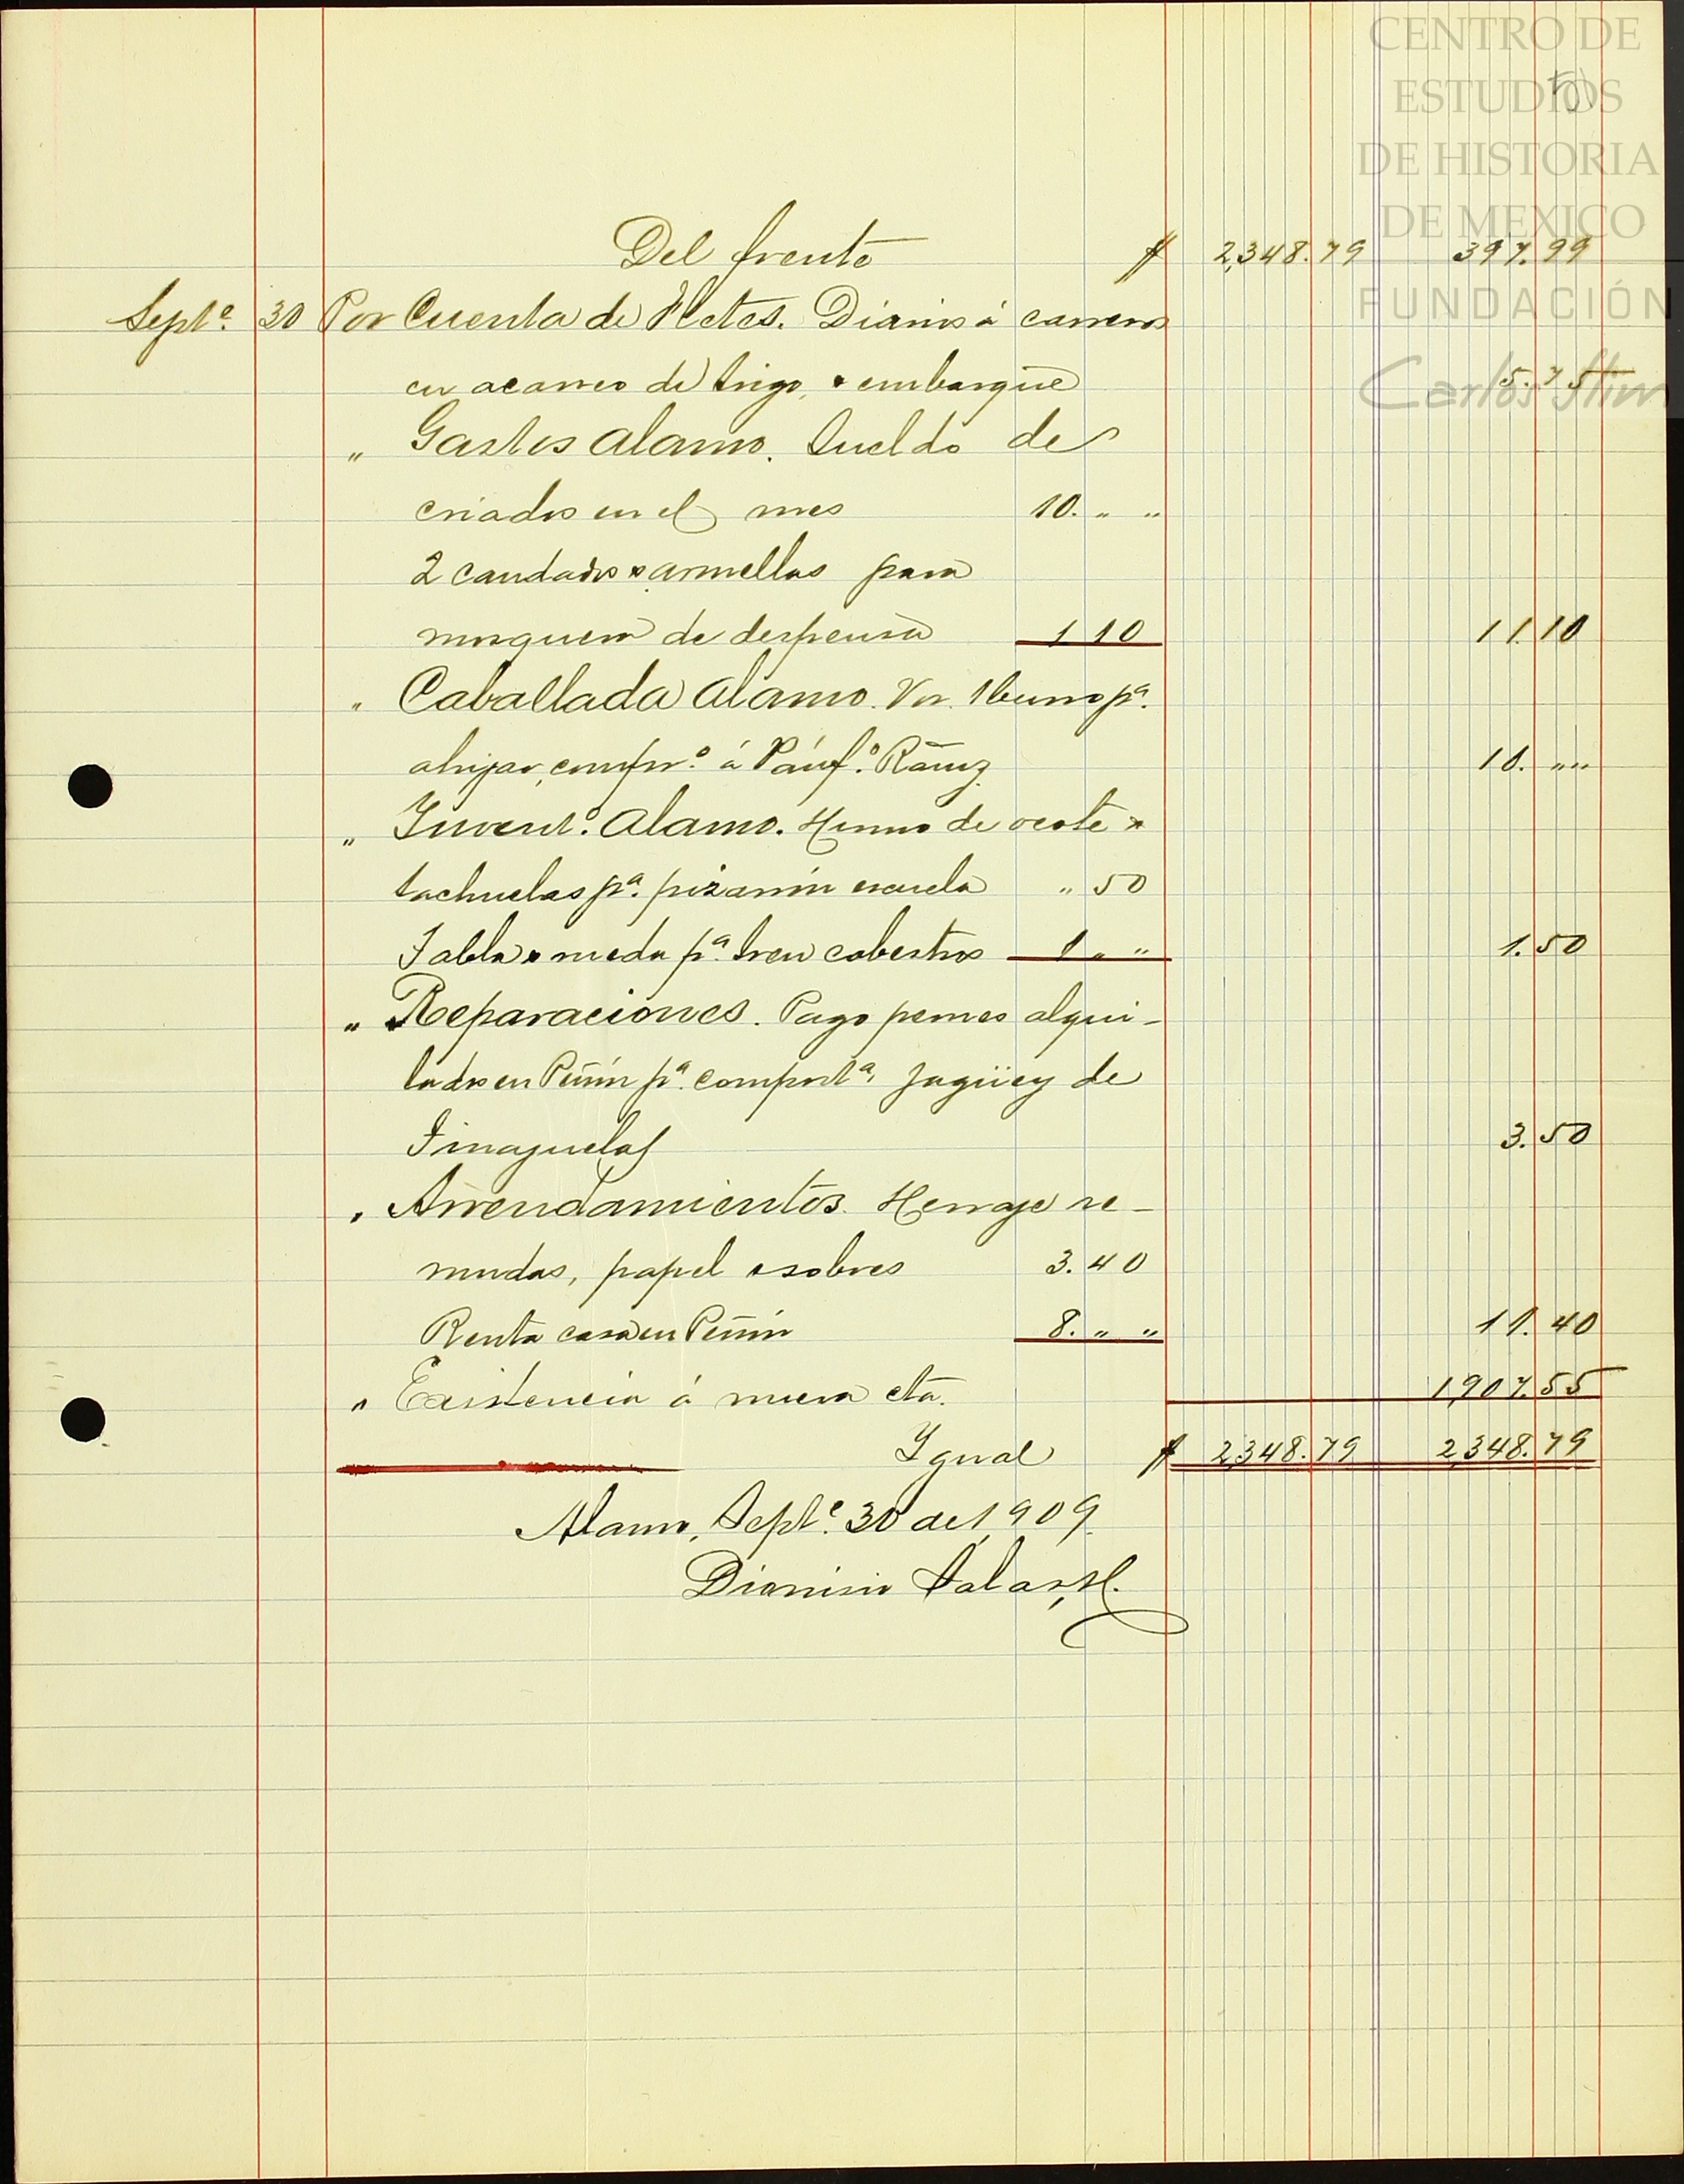 CENTRO DE
ESTUDIOS
DE HISTORIA
DE MEXICO
FUNDACIÓN
Carlos Slim
Del frente $ 2,348.79 397.99
Septe. 30 Por Cuenta de Fletes. Diarios á carreros
en acarreo de trigo, embarque 5.75
" Gastos Alamo. Sueldo de
criados en el mes 10. " "
2 candados armellas para
mosquero de despensa 1 10 11.10
" Caballada Alamo. Vr. 1 burro pa.
ahijar, compro. á Pánfo. Ramz. 10. " "
" Invento. Alamo. Hierro de
tachuelas pa. pizarrón escuela " 50
Tabla rueda pa. tren cabestros 1 " " 1.50
" Reparaciones. Pago peones alqui-
lados en Peñón pa. comporta. jagüey de
Tinajuelas 3.50
" Arrendamientos. Herraje re-
mudas, papel sobres 3.40
Renta casa en Peñón 8. " " 11.40
" Existencia á nueva cta. 1,907.55
Ygual $ 2,348.79 2,348.79
Alamo, Septe. 30 de 1,909.
Dionisio Salas, H.